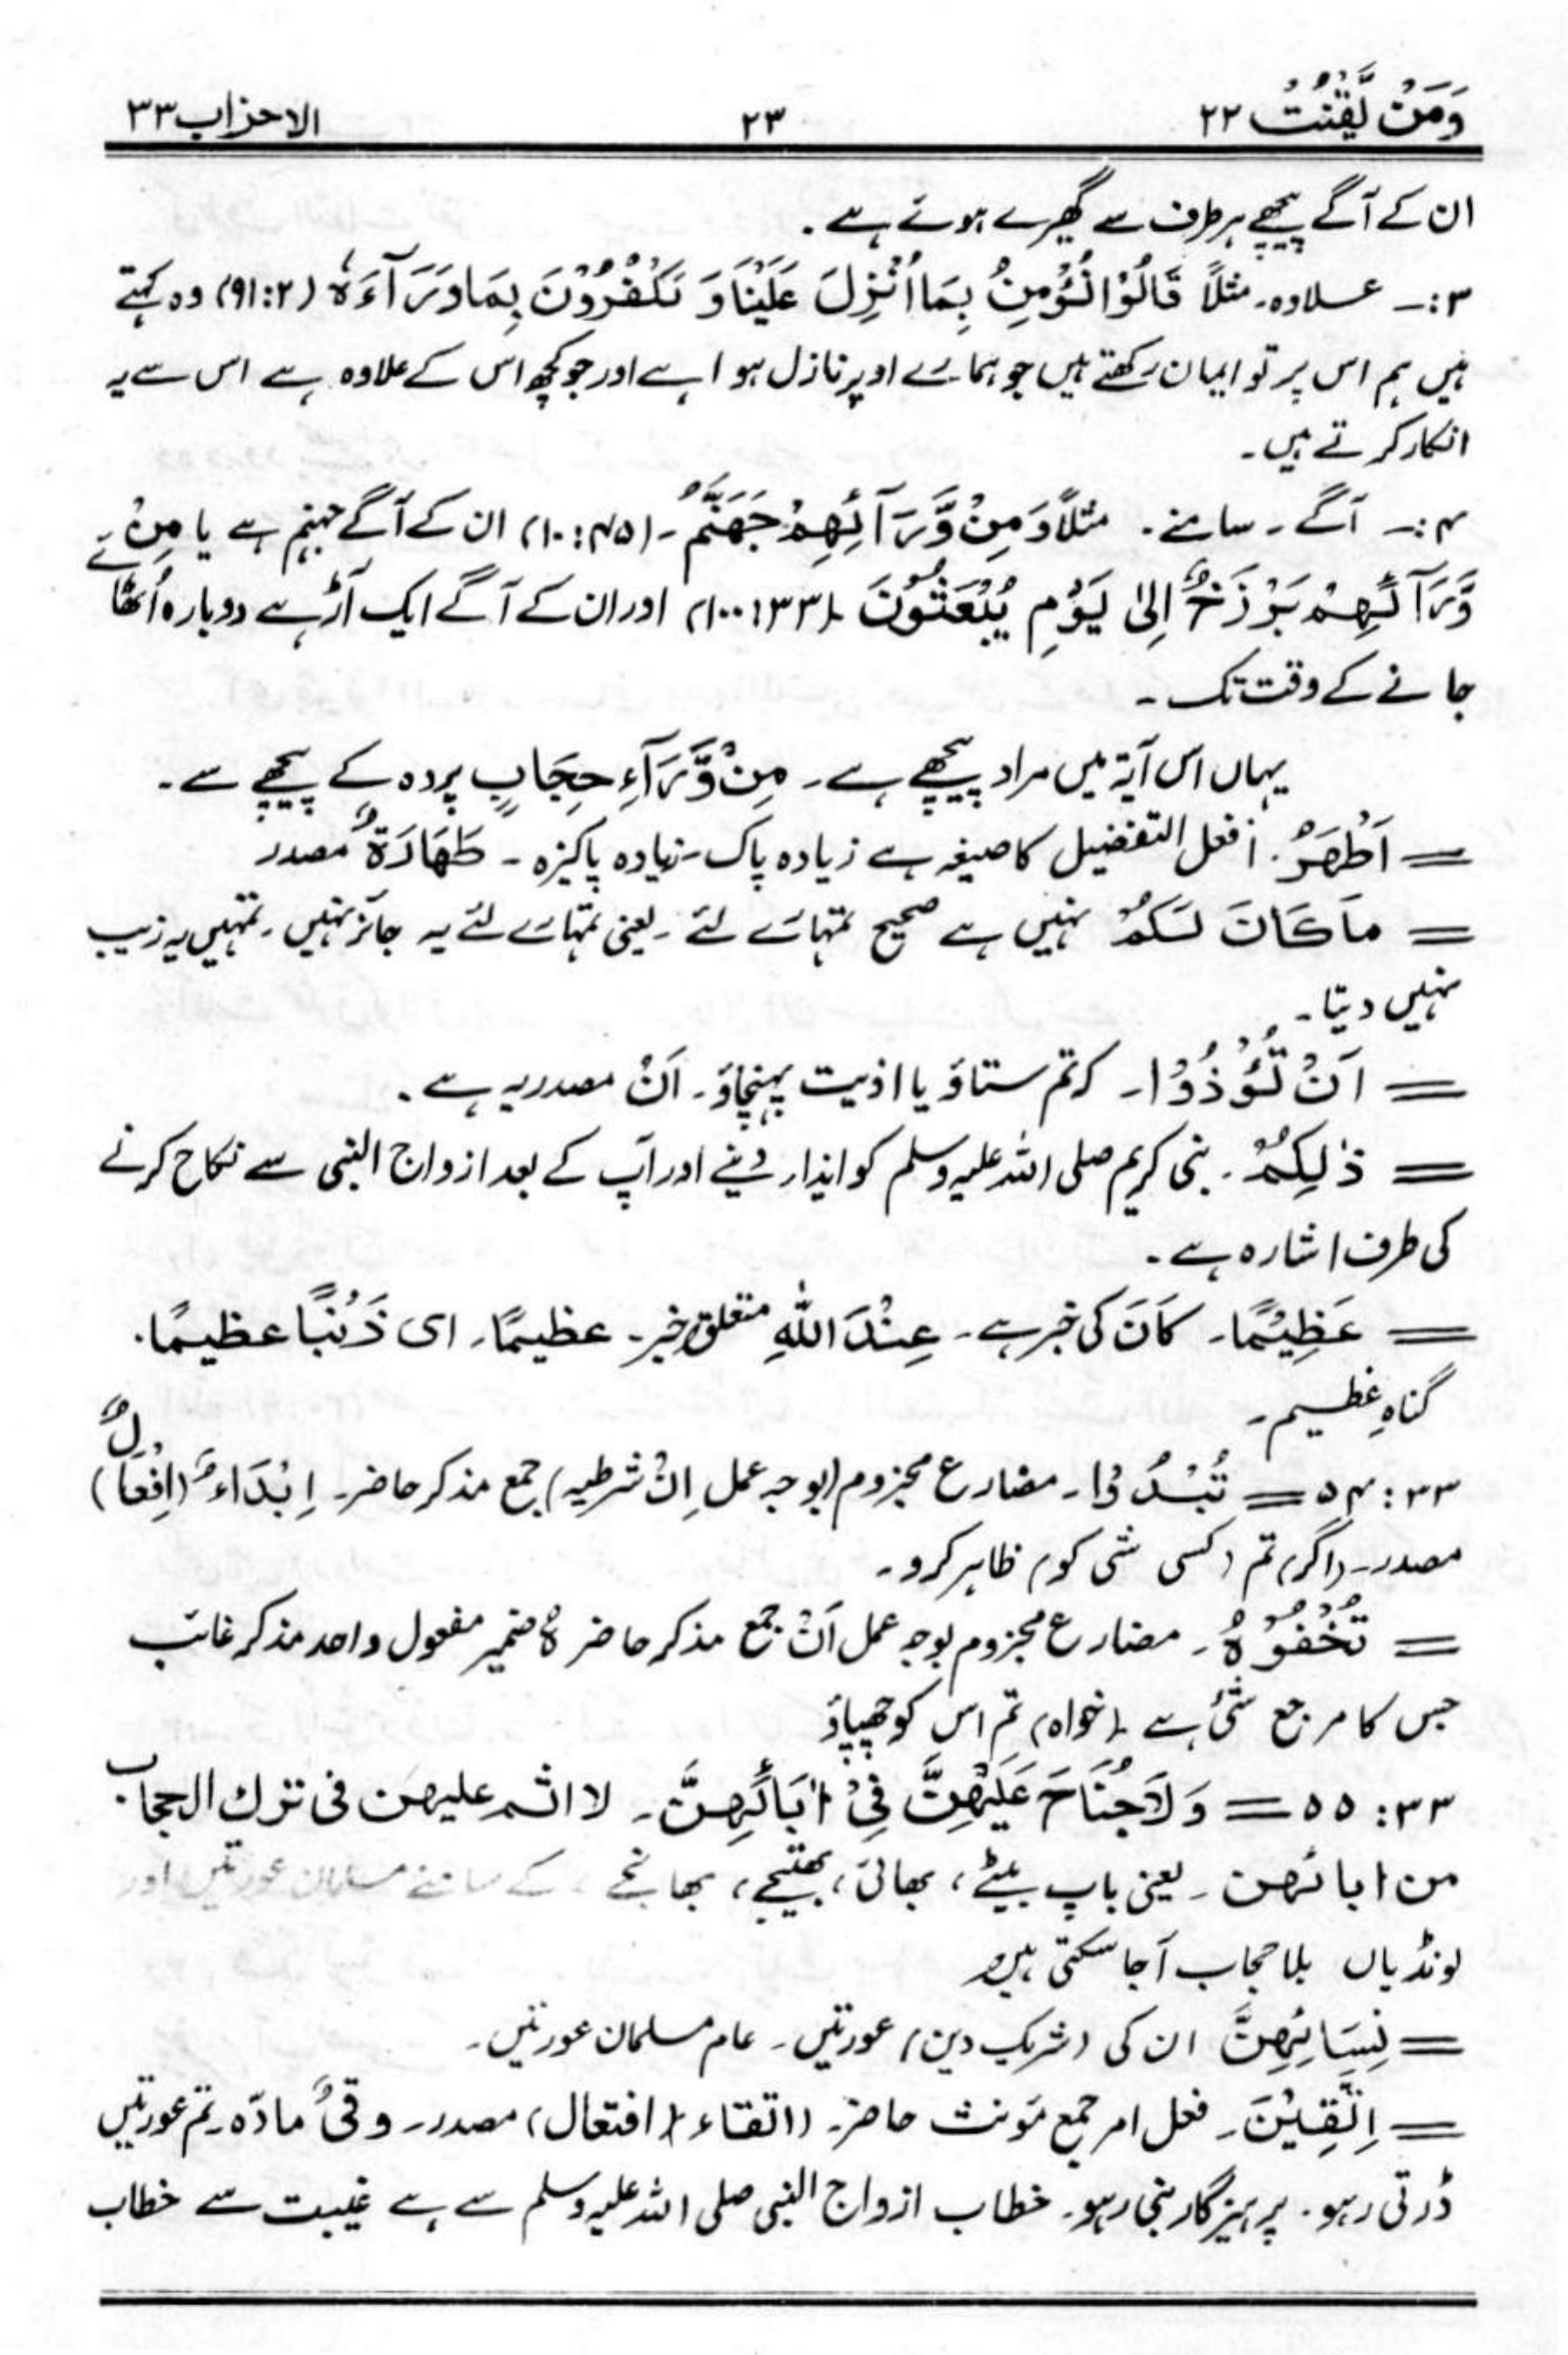 وَمَنْ يَّقْنُتْ ۲۲ ۲۳ الاحزاب ۳۳
ان کے آگے پیچھے ہر طرف سے گھیرے ہوئے ہے۔
۳:۔ علاوہ۔ مثلاً قَالُوْا نُؤْمِنُ بِمَا اُنْزِلَ عَلَیْنَا وَ یَکْفُرُوْنَ بِمَا وَرَآءَهٗ (۹۱:۲) وہ کہتے
ہیں ہم اس پر تو ایمان رکھتے ہیں جو ہمارے اوپر نازل ہوا ہے اور جو کچھ اس کے علاوہ ہے اس سے یہ
انکار کرتے ہیں۔
۴:۔ آگے۔ سامنے۔ مثلاً وَ مِنْ وَّرَآئِهِمْ جَهَنَّمُ۔ (۱۰:۴۵) ان کے آگے جہنم ہے یا مِنْ
وَّرَآئِهِمْ بَرْزَخٌ اِلٰی یَوْمِ یُبْعَثُوْنَ (۱۰۰:۲۳) اور ان کے آگے ایک آڑ ہے دوبارہ اُٹھائے
جانے کے وقت تک۔
یہاں اس آیۃ میں مراد پیچھے ہے۔ مِنْ وَّرَآءِ حِجَابٍ پردہ کے پیچھے سے۔
= اَطْهَرُ۔ افعل التفضیل کا صیغہ ہے زیادہ پاک۔ زیادہ پاکیزہ۔ طَهَارَةٌ مصدر
= مَا کَانَ لَکُمْ نہیں ہے صحیح تمہارے لئے۔ یعنی تمہارے لئے یہ جائز نہیں۔ تمہیں یہ زیب
نہیں دیتا۔
= اَنْ تُؤْذُوْا۔ کہ تم ستاؤ یا اذیت پہنچاؤ۔ اَنْ مصدریہ ہے۔
= ذٰلِکُمْ۔ نبی کریم صلی اللہ علیہ وسلم کو ایذار دینے اور آپ کے بعد ازواج النبی سے نکاح کرنے
کی طرف اشارہ ہے۔
= عَظِیْمًا۔ کَانَ کی خبر ہے۔ عِنْدَ اللّٰهِ متعلق خبر۔ عظیمًا۔ ای ذَنْبًا عظیمًا۔
گناہِ عظیم۔
۳۳:۵۴ = تُبْدُوْا۔ مضارع مجزوم (بوجہ عمل اِنْ شرطیہ) جمع مذکر حاضر۔ اِبْدَاءٌ (اِفْعَالٌ)
مصدر۔ (اگر) تم (کسی شی کو) ظاہر کرو۔
= تُخْفُوْهُ۔ مضارع مجزوم بوجہ عمل اَنْ جمع مذکر حاضر هُ ضمیر مفعول واحد مذکر غائب
جس کا مرجع شئ ہے (خواہ) تم اس کو چھپاؤ
۳۳:۵۵ = وَلَا جُنَاحَ عَلَیْهِنَّ فِیْ اٰبَآئِهِنَّ۔ لا اثم علیهن فی ترك الحجاب
من ابائهن۔ یعنی باپ بیٹے، بھائی، بھتیجے، بھانجے، کے سامنے مسلمان عورتیں اور
لونڈیاں بلا حجاب آجا سکتی ہیں۔
= نِسَائِهِنَّ ان کی (شریکِ دین) عورتیں۔ عام مسلمان عورتیں۔
= اِتَّقِیْنَ۔ فعل امر جمع مؤنث حاضر۔ (اتقاء (افتعال) مصدر۔ وقیٌ مادّہ۔ تم عورتیں
ڈرتی رہو۔ پرہیزگار بنی رہو۔ خطاب ازواج النبی صلی اللہ علیہ وسلم سے ہے غیبت سے خطاب